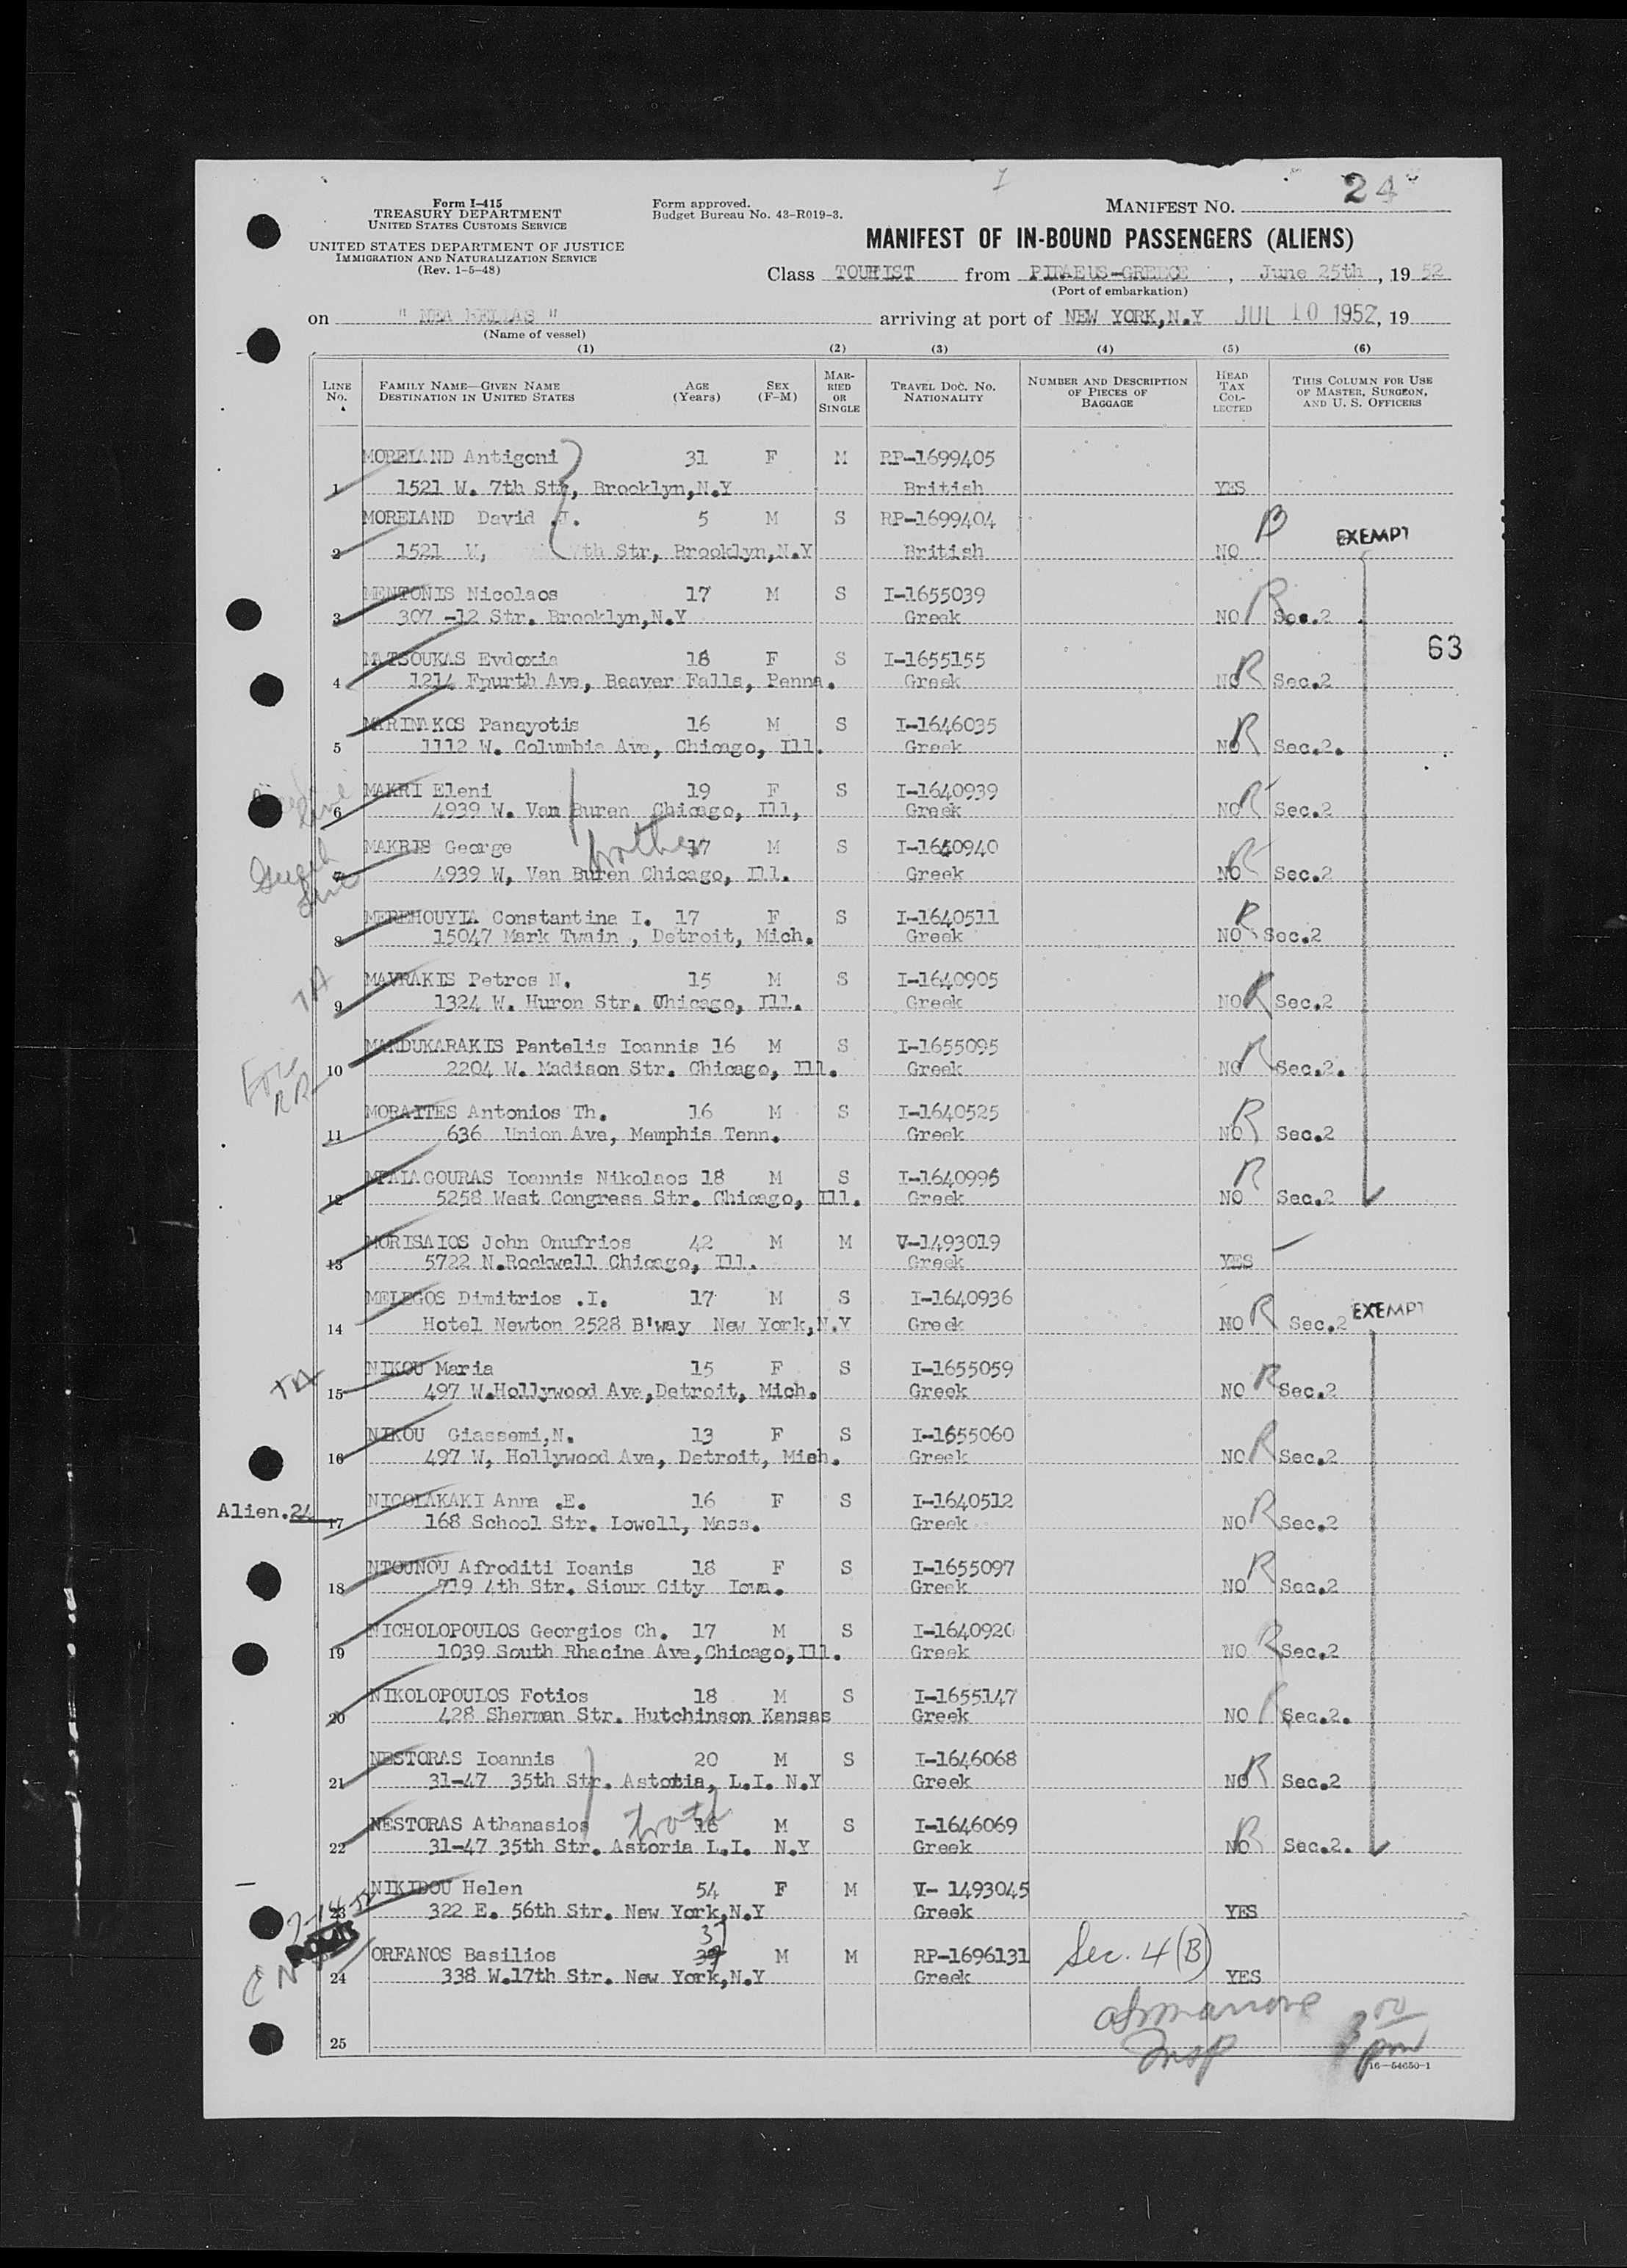 24
Form I-415
TREASURY DEPARTMENT
UNITED STATES CUSTOMS SERVICE
UNITED STATES DEPARTMENT OF JUSTICE
IMMIGRATION AND NATURALIZATION SERVICE
(Rev. 1-5-48)
Form approved.
Budget Bureau No. 43-R019-3.
MANIFEST NO.
MANIFEST OF IN-BOUND PASSENGERS (ALIENS)
Class TOURIST from PIRAEUS-GREECE, June 25th, 19 52
(Port of embarkation)
on " NEA HELLAS " arriving at port of NEW YORK,N.Y JUL 10 1952, 19
(Name of vessel)
(1) (2) (3) (4) (5) (6)
LINE NO. FAMILY NAME—GIVEN NAME DESTINATION IN UNITED STATES AGE (Years) SEX (F-M) MARRIED OR SINGLE TRAVEL DOC. NO. NATIONALITY NUMBER AND DESCRIPTION OF PIECES OF BAGGAGE HEAD TAX COLLECTED THIS COLUMN FOR USE OF MASTER, SURGEON, AND U. S. OFFICERS
MORELAND Antigoni 31 F M RP-1699405
1 1521 W. 7th Str, Brooklyn,N.Y British YES
MORELAND David .J. 5 M S RP-1699404 B EXEMPT
2 1521 W, 7th Str, Brooklyn,N.Y British NO
MENTONIS Nicolaos 17 M S I-1655039
3 307 -12 Str. Brooklyn,N.Y Greek NO R Sec.2
63
MATSOUKAS Evdoxia 18 F S I-1655155
4 1214 Fpurth Ave, Beaver Falls, Penna. Greek NO R Sec.2
MARINAKOS Panayotis 16 M S I-1646035
5 1112 W. Columbia Ave, Chicago, Ill. Greek NO R Sec.2.
MAKRI Eleni 19 F S I-1640939
6 4939 W. Van Buren Chicago, Ill, Greek NO R Sec.2
MAKRIS George brother 17 M S I-1640940
7 4939 W, Van Buren Chicago, Ill. Greek NO R Sec.2
MEREHOUYIA Constantina I. 17 F S I-1640511
8 15047 Mark Twain , Detroit, Mich. Greek NO R Sec.2
MAVRAKIS Petros N. 15 M S I-1640905
TA 9 1324 W. Huron Str. Chicago, Ill. Greek NO R Sec.2
MANDUKARAKIS Pantelis Ioannis 16 M S I-1655095
10 2204 W. Madison Str. Chicago, Ill. Greek NO R Sec.2.
RR
MORAITES Antonios Th. 16 M S I-1640525
11 636 Union Ave, Memphis Tenn. Greek NO R Sec.2
MPALAGOURAS Ioannis Nikolaos 18 M S I-1640995
12 5258 West Congress Str. Chicago, Ill. Greek NO R Sec.2
MORISAIOS John Onufrios 42 M M V-1493019
13 5722 N.Rockwell Chicago, Ill. Greek YES
MELEGOS Dimitrios .I. 17 M S I-1640936
14 Hotel Newton 2528 B'way New York,N.Y Greek NO R Sec.2 EXEMPT
NIKOU Maria 15 F S I-1655059
TA 15 497 W.Hollywood Ave,Detroit, Mich. Greek NO R Sec.2
NIKOU Giassemi,N. 13 F S I-1655060
16 497 W, Hollywood Ave, Detroit, Mich. Greek NO R Sec.2
NICOLAKAKI Anna .E. 16 F S I-1640512
Alien.24 17 168 School Str. Lowell, Mass. Greek NO R Sec.2
NTOUNOU Afroditi Ioanis 18 F S I-1655097
18 719 4th Str. Sioux City Iowa. Greek NO R Sec.2
NICHOLOPOULOS Georgios Ch. 17 M S I-1640920
19 1039 South Rhacine Ave,Chicago,Ill. Greek NO R Sec.2
NIKOLOPOULOS Fotios 18 M S I-1655147
20 428 Sherman Str. Hutchinson Kansas Greek NO R Sec.2.
NESTORAS Ioannis 20 M S I-1646068
21 31-47 35th Str. Astoria, L.I. N.Y Greek NO R Sec.2
NESTORAS Athanasios 16 M S I-1646069
22 31-47 35th Str. Astoria L.I. N.Y Greek NO R Sec.2.
NIKIDOU Helen 54 F M V- 1493045
23 322 E. 56th Str. New York,N.Y Greek YES
ORFANOS Basilios 39 M M RP-1696131 Sec. 4(B)
24 338 W.17th Str. New York,N.Y Greek YES
Insp
25
pm
16—54650-1